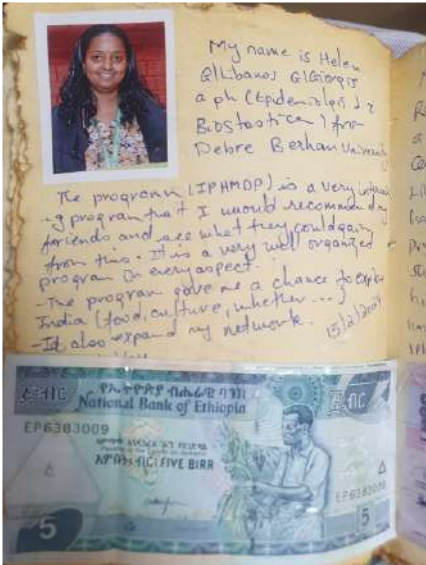 My name is Helen
G/Libanos G/Giorgis
a ph (Epidemiolgis &
Biostastica) from
Debre Berhan University
The program (IPHMDP) is a very
-g program that I would recommend my
friends and see what they could gain
from this. It is a very well organized
program in every aspect.
-The program gave me a chance to explore
India (food, culture, whether ...)
-It also expand my network. 15/2/2024
የኢትዮጵያ ብሔራዊ ባንክ
National Bank of Ethiopia
EP6383009
አምስት ብር FIVE BIRR
EP6383009
5
5